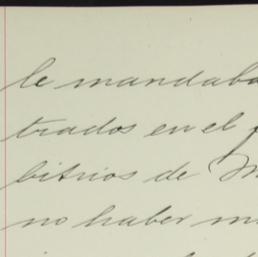 le mandaba
trados en el
bitrios de
no haber